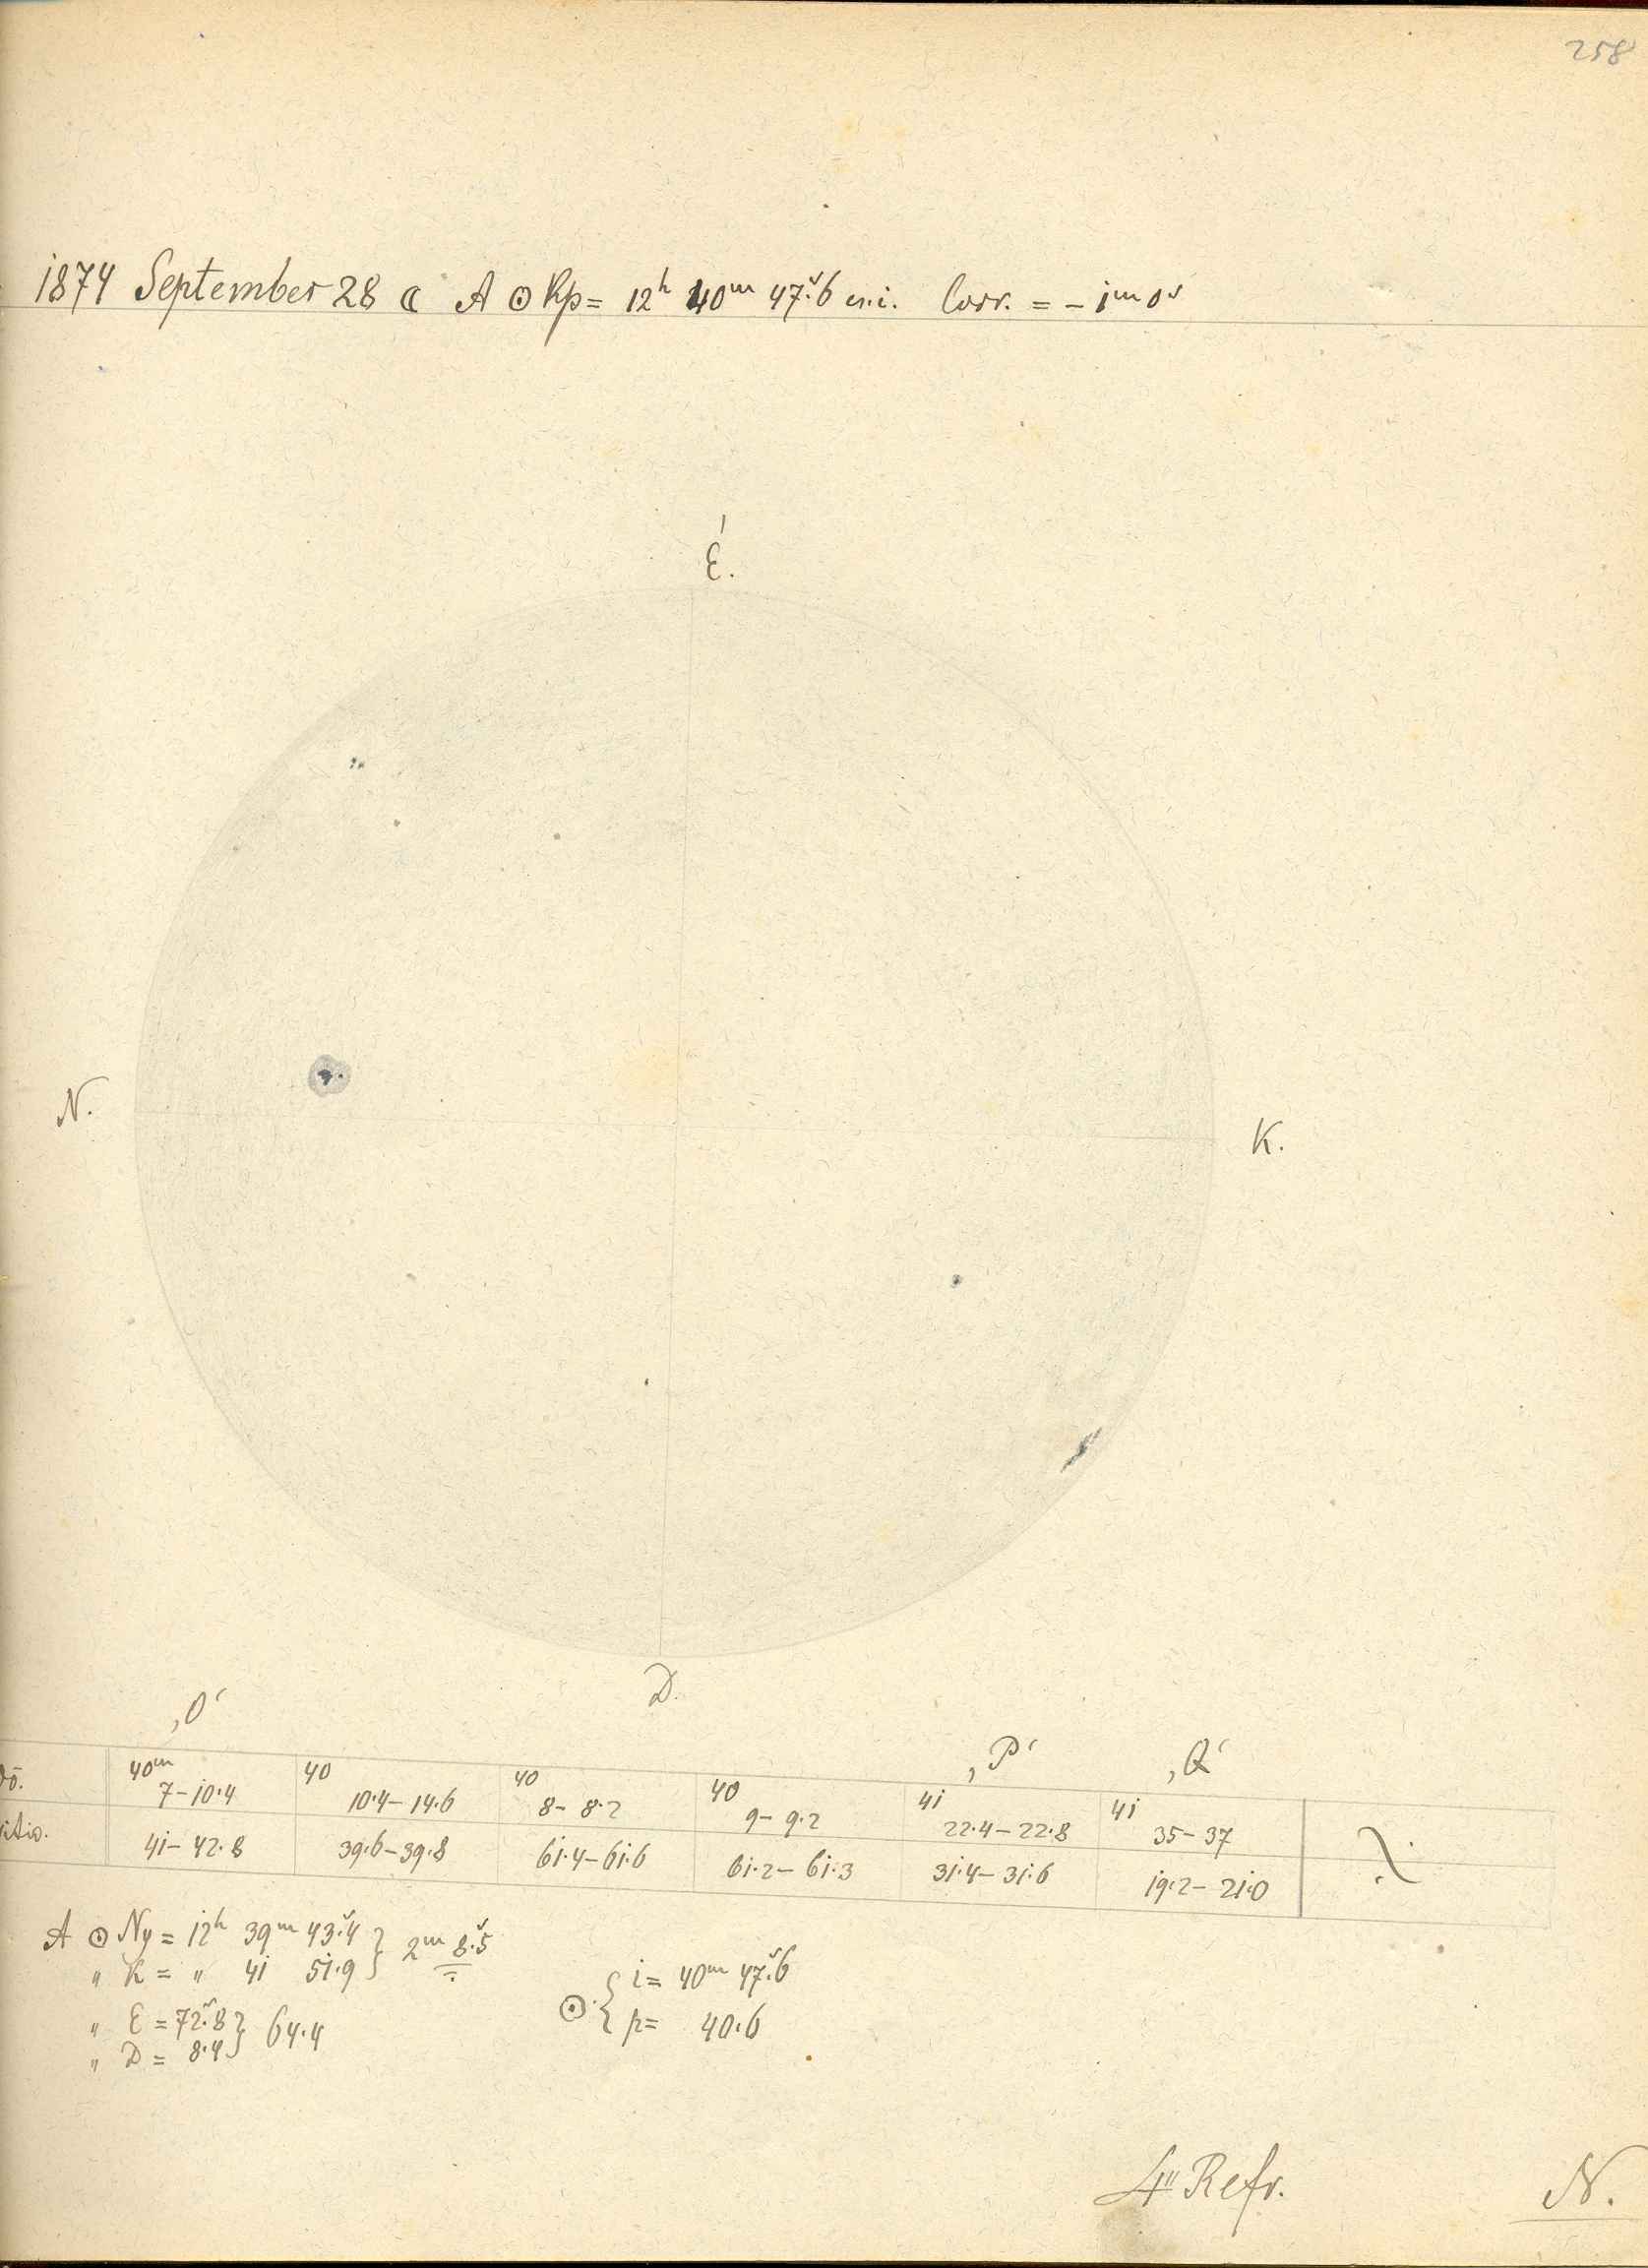 258
1874 September 28 ☾ A ☉ Kp = 12ʰ 40ᵐ 47ˢ.6 cs.i. Corr. = – 1ᵐ 0ˢ
É.
N.
K.
D.
„O“
„P“ „Q“
40ᵐ 7–10.4 40 10.4–14.6 40 8–8.2 40 9–9.2 41 22.4–22.8 41 35–37
41–42.8 39.6–39.8 61.4–61.6 61.2–61.3 31.4–31.6 19.2–21.0
A ☉ Ny = 12ʰ 39ᵐ 43ˢ.4 } 2ᵐ 8ˢ.5
" K = " 41 51.9
" É = 72ˢ.8 } 64.4
" D = 8.4
☉ { i = 40ᵐ 47ˢ.6
p = 40.6
4" Refr.
N.